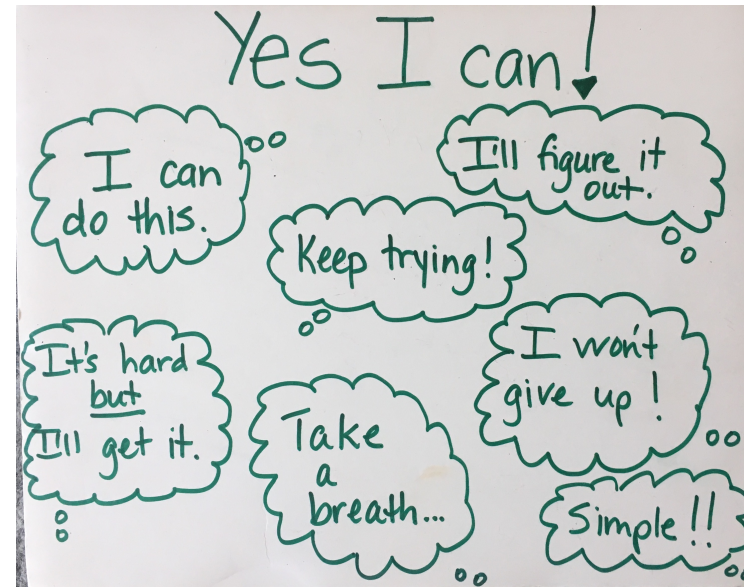 Yes I can!
I can
do this.
I'll figure it
out.
Keep trying!
It's hard
but
I'll get it.
I won't
give up!
Take
a
breath...
Simple!!